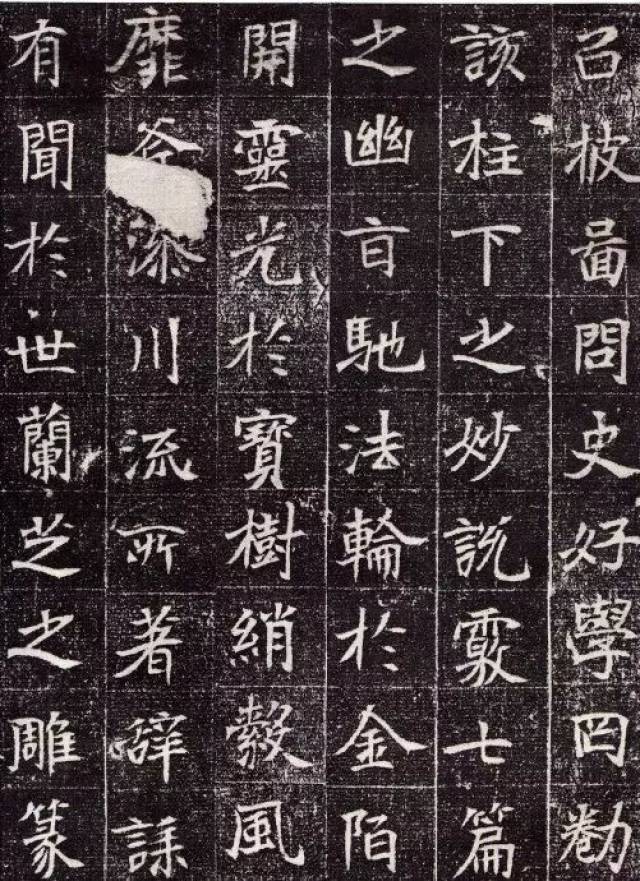 召披啚問史好學罔勌
該柱下之妙說覈七篇
之幽旨馳法輪於金陌
開靈光於寶樹綃縠風
靡川流所著辭誄
有聞於世蘭芝之雕篆